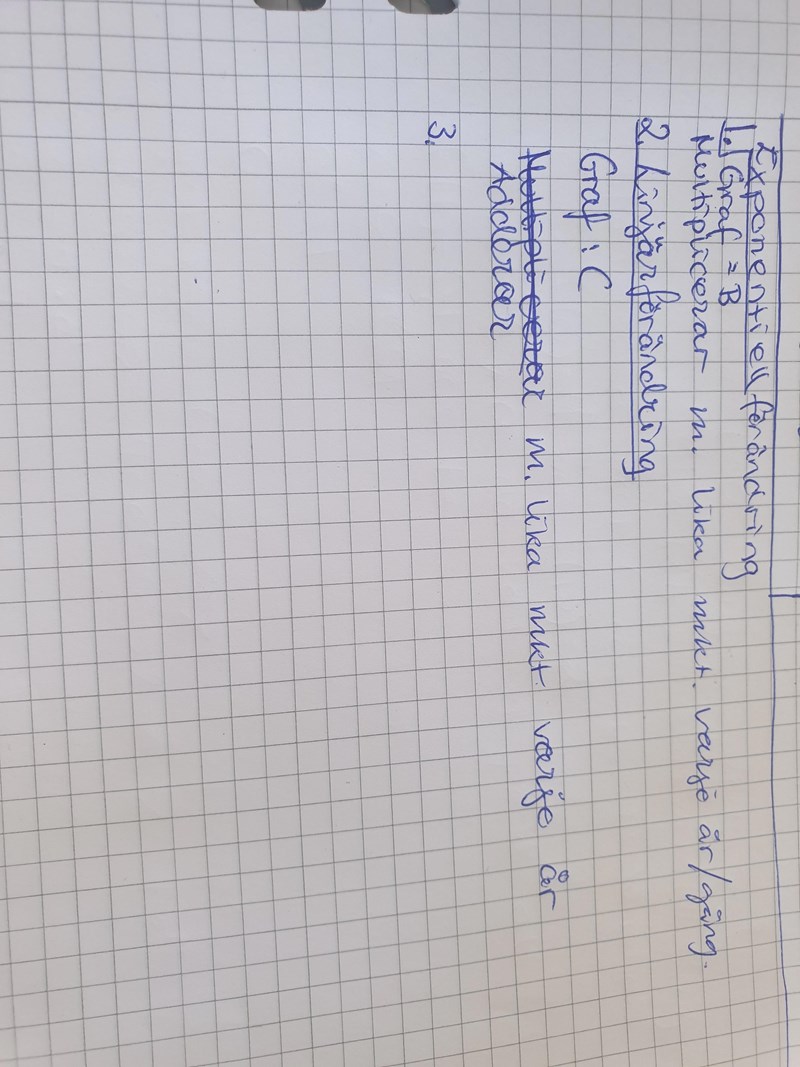 Exponentiell förändring
1. Graf = B
Multiplicerar m. lika mkt. varje år/gång.
2. Linjär förändring
Graf: C
Multiplicerar m. lika mkt varje år
Adderar
3.